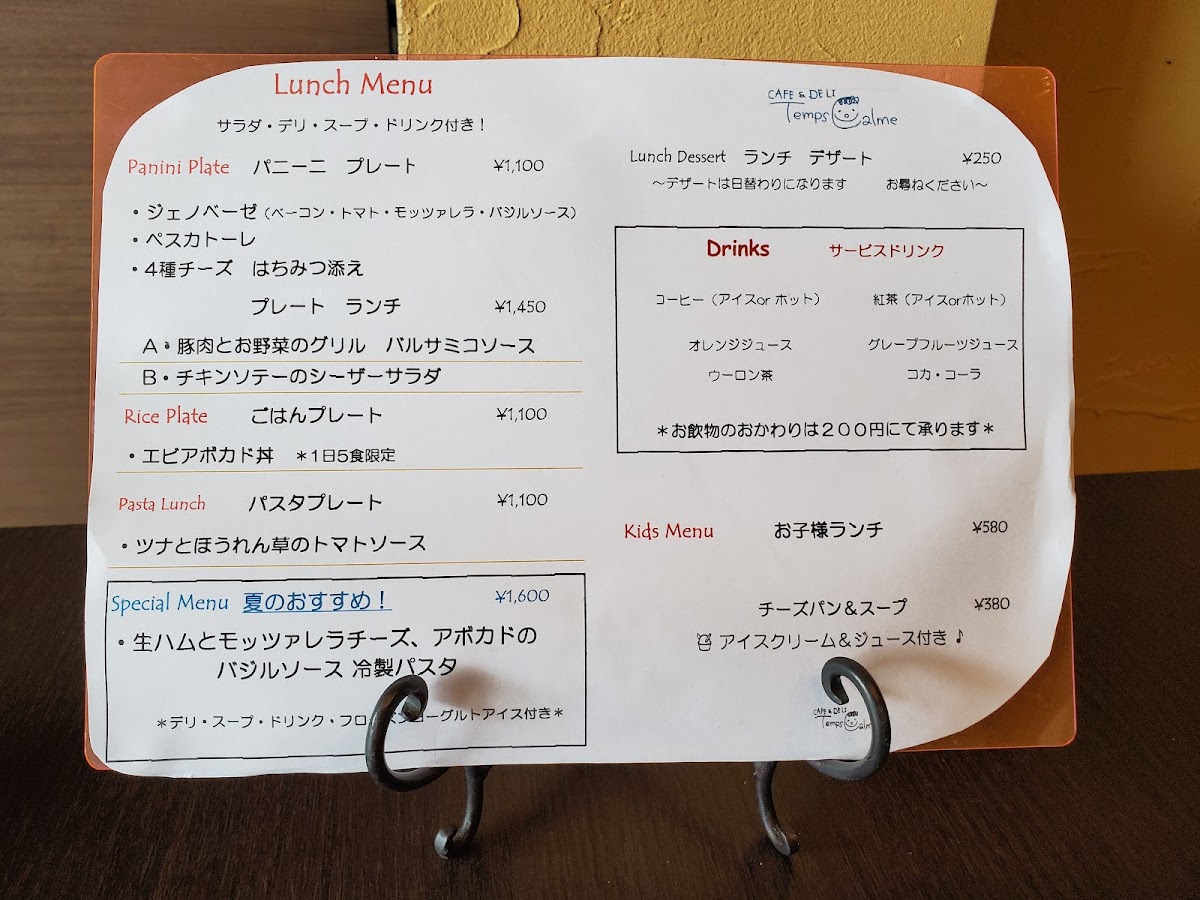 Lunch Menu
サラダ・デリ・スープ・ドリンク付き!
Panini Plate パニーニ プレート ¥1,100
・ジェノベーゼ(ベーコン・トマト・モッツァレラ・バジルソース)
・ペスカトーレ
・4種チーズ はちみつ添え
プレート ランチ ¥1,450
A・豚肉とお野菜のグリル バルサミコソース
B・チキンソテーのシーザーサラダ
Rice Plate ごはんプレート ¥1,100
・エビアボカド丼 *1日5食限定
Pasta Lunch パスタプレート ¥1,100
・ツナとほうれん草のトマトソース
Special Menu 夏のおすすめ! ¥1,600
・生ハムとモッツァレラチーズ、アボカドの
バジルソース 冷製パスタ
*デリ・スープ・ドリンク・フロ ーグルトアイス付き*
CAFE & DELI
Temps Calme
Lunch Dessert ランチ デザート ¥250
~デザートは日替わりになります お尋ねください~
Drinks サービスドリンク
コーヒー(アイスor ホット) 紅茶(アイスorホット)
オレンジジュース グレープフルーツジュース
ウーロン茶 コカ・コーラ
*お飲物のおかわりは200円にて承ります*
Kids Menu お子様ランチ ¥580
チーズパン&スープ ¥380
アイスクリーム&ジュース付き♪
CAFE & DELI
Temps Calme